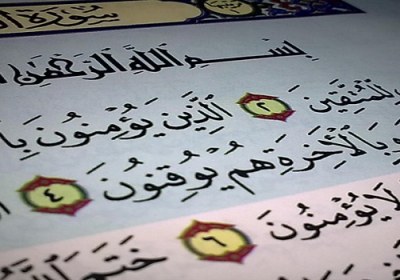 سُورَةُ
بِسْمِ اللَّهِ الرَّحْمَٰنِ
لِّلْمُتَّقِينَ ٢ الَّذِينَ يُؤْمِنُونَ بِا
وَبِالْآخِرَةِ هُمْ يُوقِنُونَ ٤
لَا يُؤْمِنُونَ ٦ خَتَمَ اللَّهُ